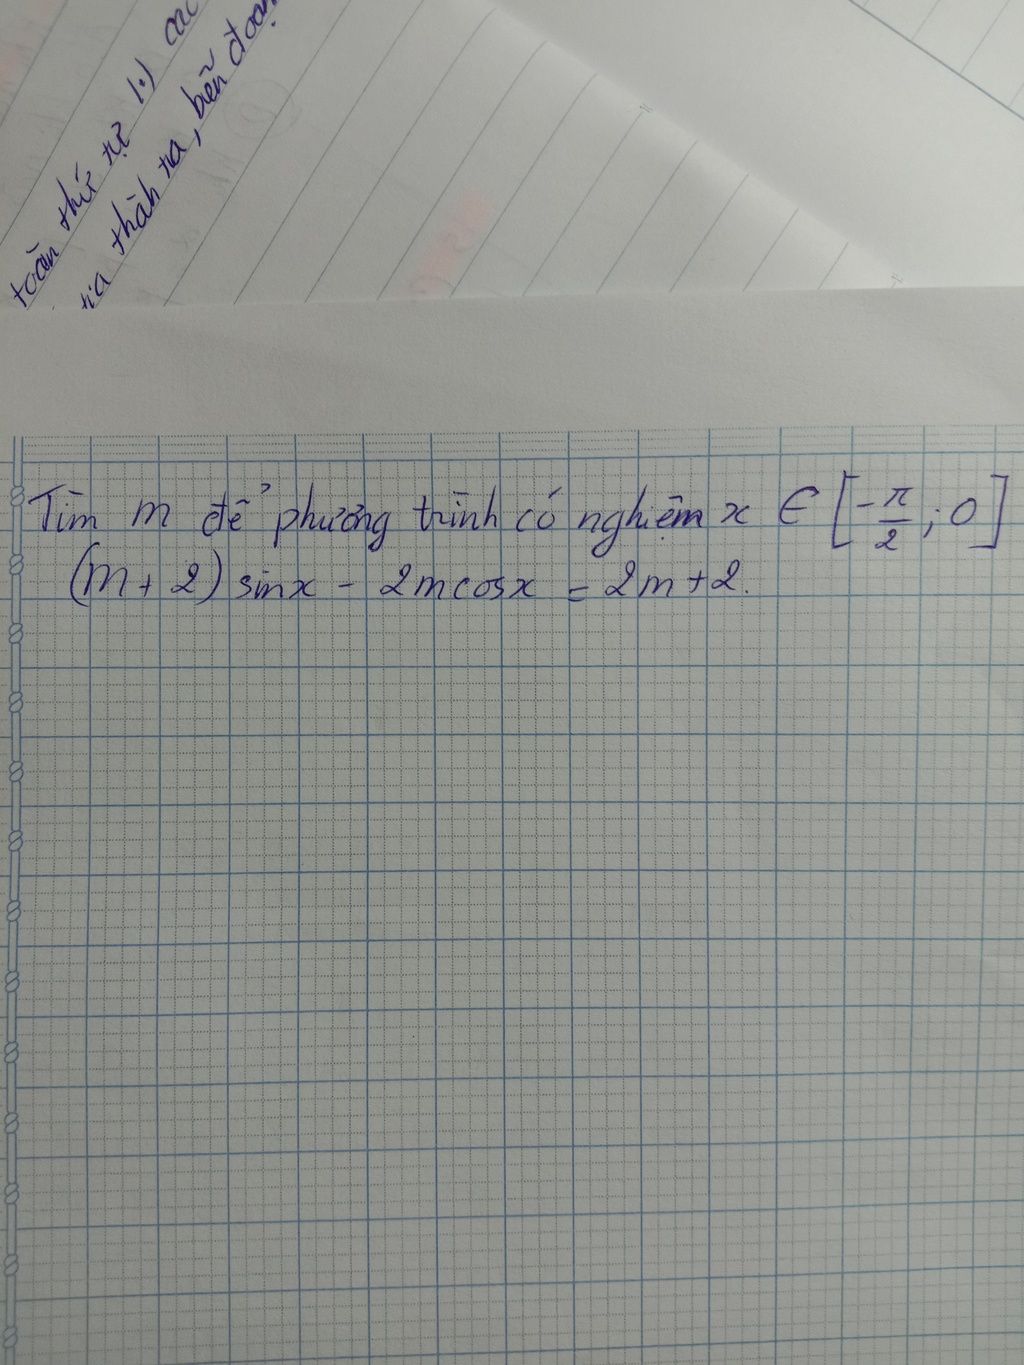 toán thứ tự 1.) các
tia thành ra, biến đoạn
Tìm m để phương trình có nghiệm x ∈ [-π/2; 0]
(m + 2) sinx - 2mcosx = 2m+2.